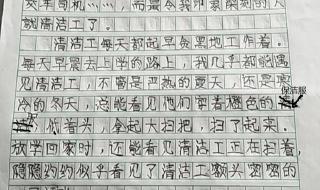 交车司机……，而最令我印象深刻的人
就清洁工了。
清洁工每天都起早贪黑地工作着。
每天早晨去上学的路上，我几乎都能遇
见清洁工，不管是严热的夏天，还是寒
冷的冬天，总能看见他们穿着橙色的
保洁服
低着头，拿起大扫把，扫了起菜。
放学回家时，还能看见清洁工正在扫着，
隐隐约约似乎看见了清洁工额头密密的